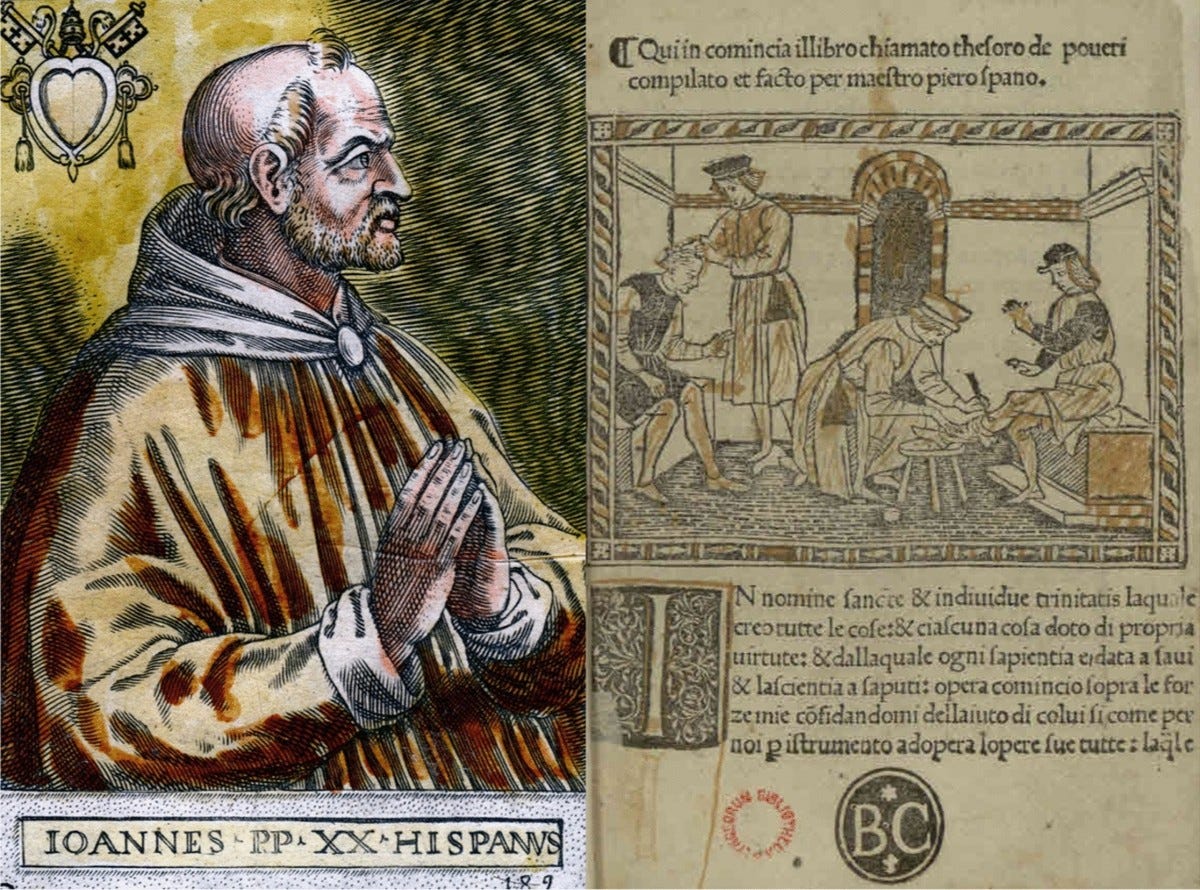 IOANNES PP XX HISPANVS
189
¶ Qui in comincia illibro chiamato thesoro de poueri
compilato et facto per maestro piero spano.
IN nomine sancte & indiuidue trinitatis laquale
creo tutte le cose: & ciascuna cosa doto di propria
uirtute: & dallaquale ogni sapientia e, data a saui
& lascientia a saputi: opera comincio sopra le for
ze mie cõfidandomi dellaiuto di colui si come per
noi ꝑ istrumento adopera lopere sue tutte: laq̃le
B C